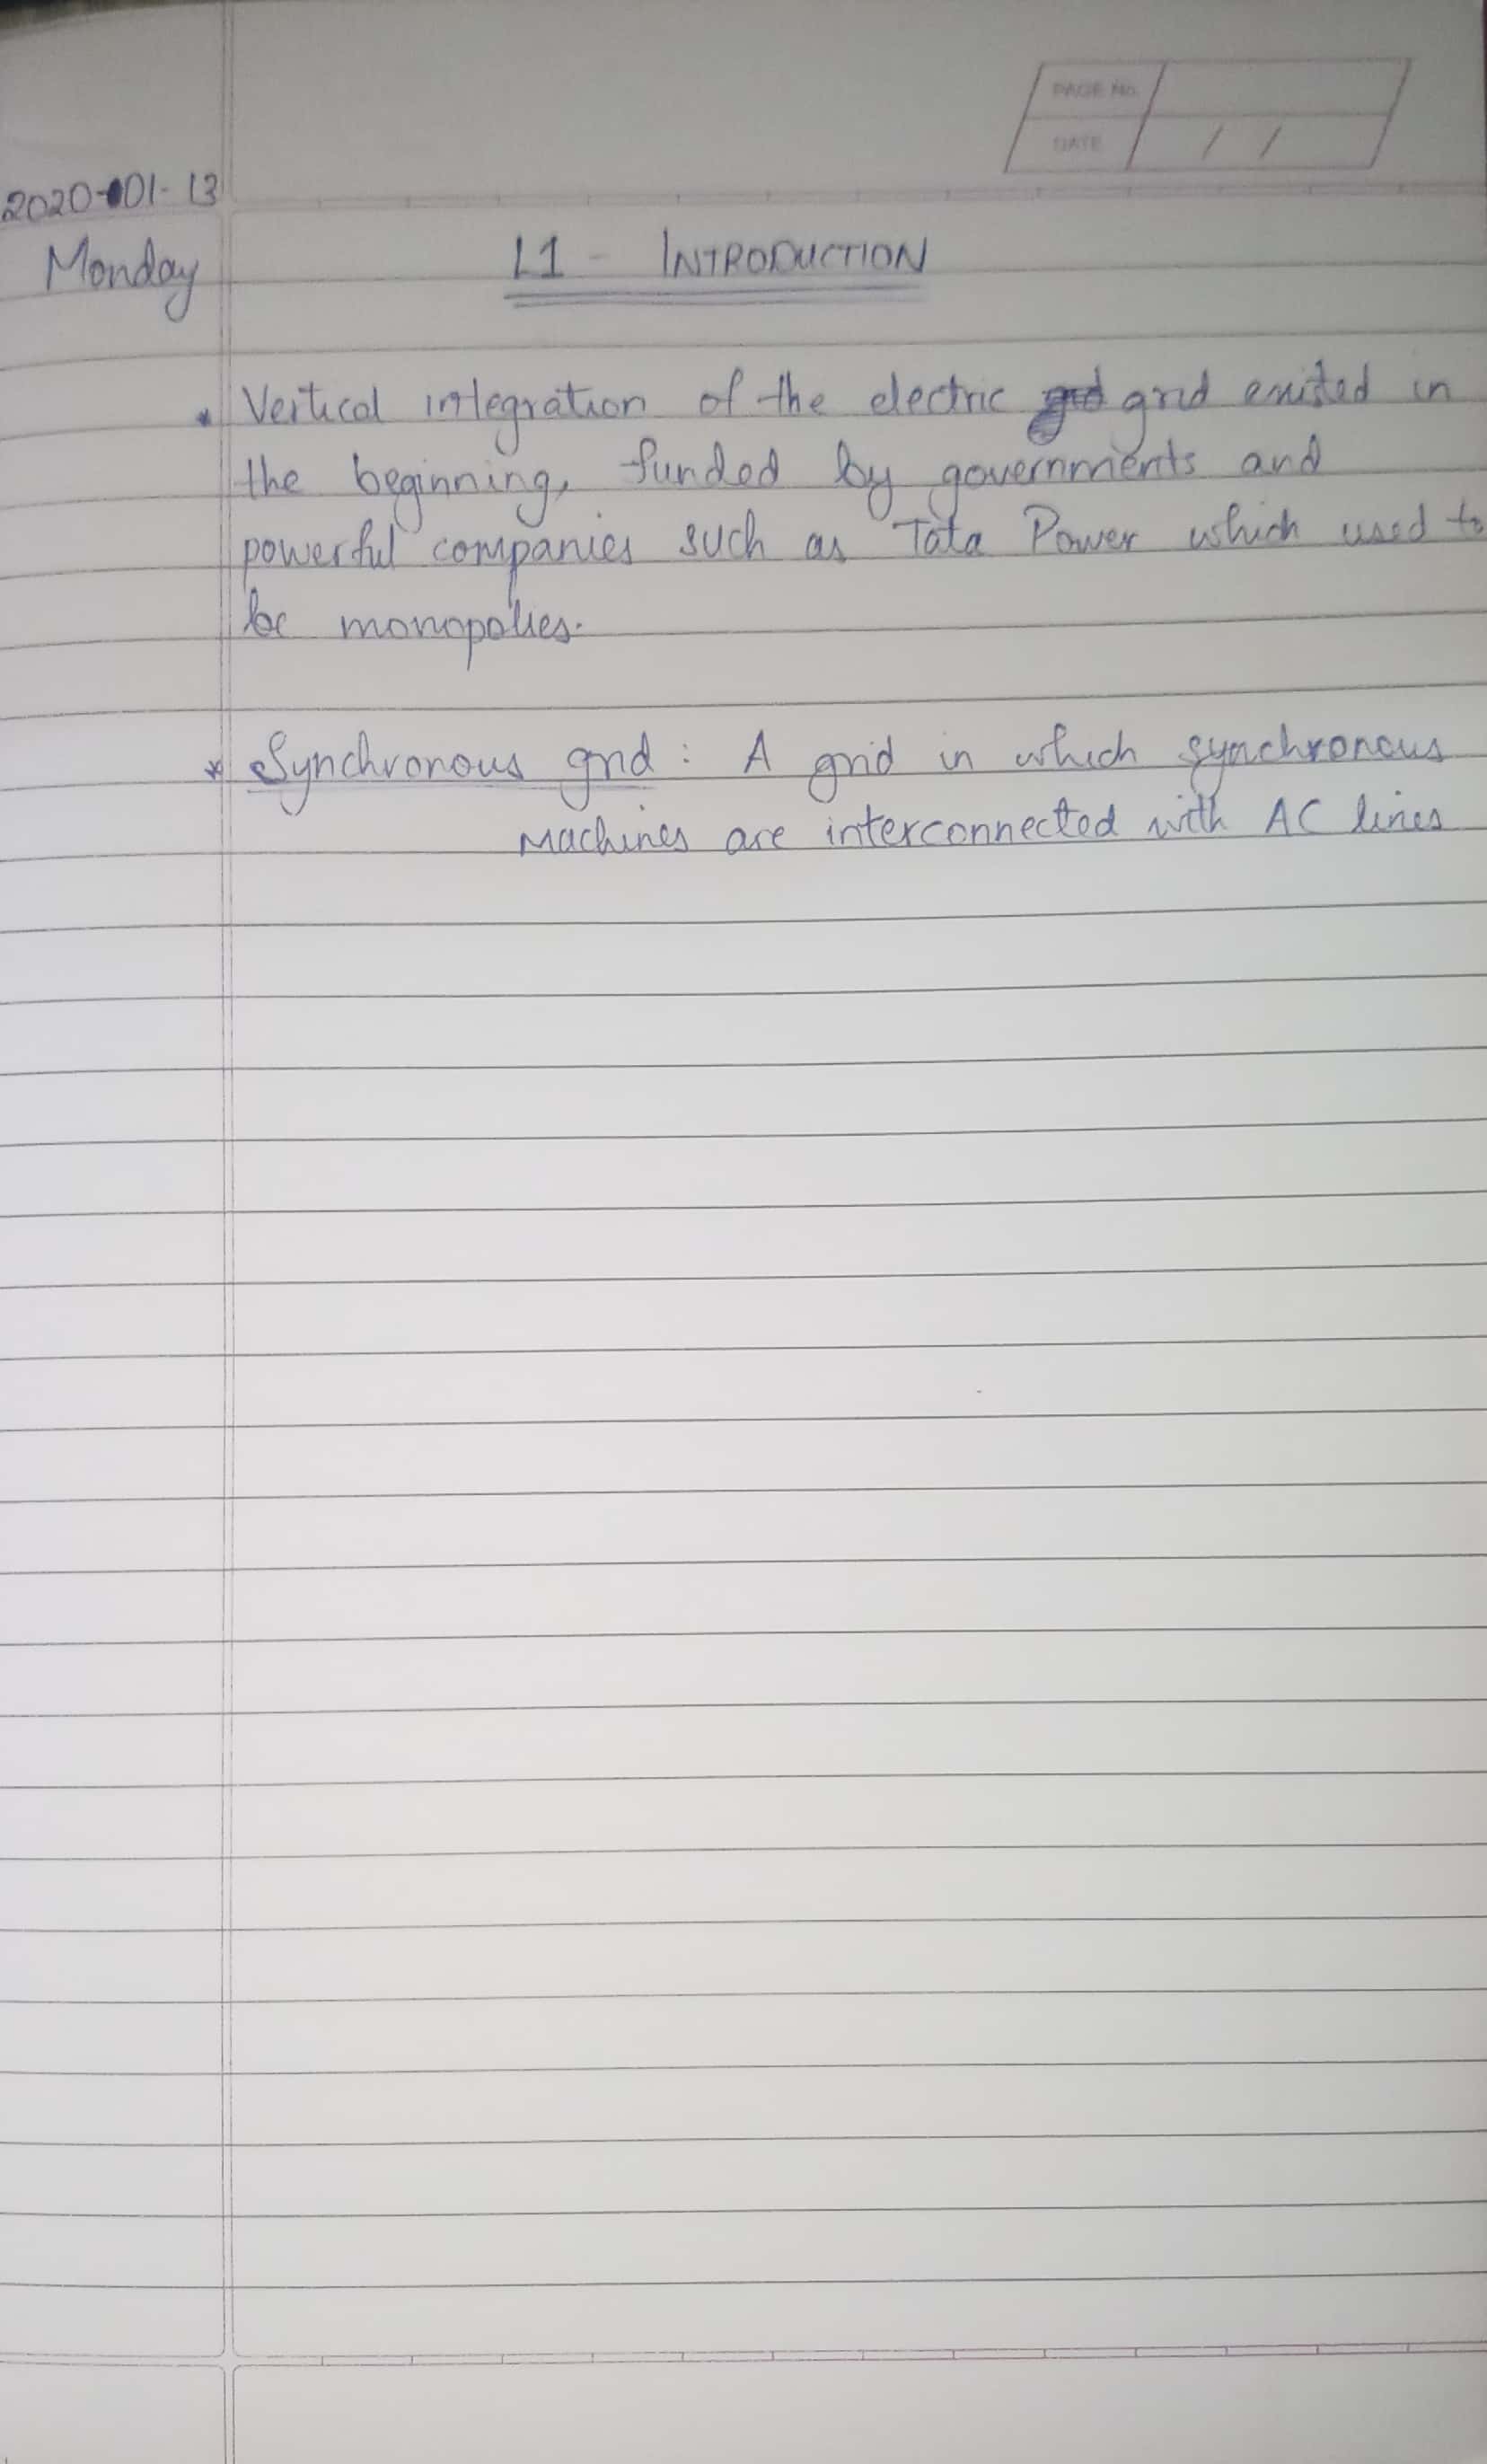 PAGE No.
DATE / /
2020-01-13
Monday
L1 - INTRODUCTION
* Vertical integration of the electric grid existed in
the beginning, funded by governments and
powerful companies such as Tata Power which used to
be monopolies.
* Synchronous grid : A grid in which synchronous
machines are interconnected with AC lines